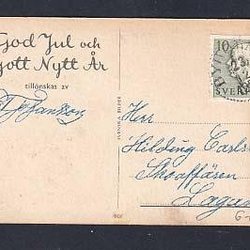 God Jul och
Gott Nytt År
tillönskas av
T Johanson
10
SVERIGE
Herr
Hilding Carlson
Skoaffären
Lagan